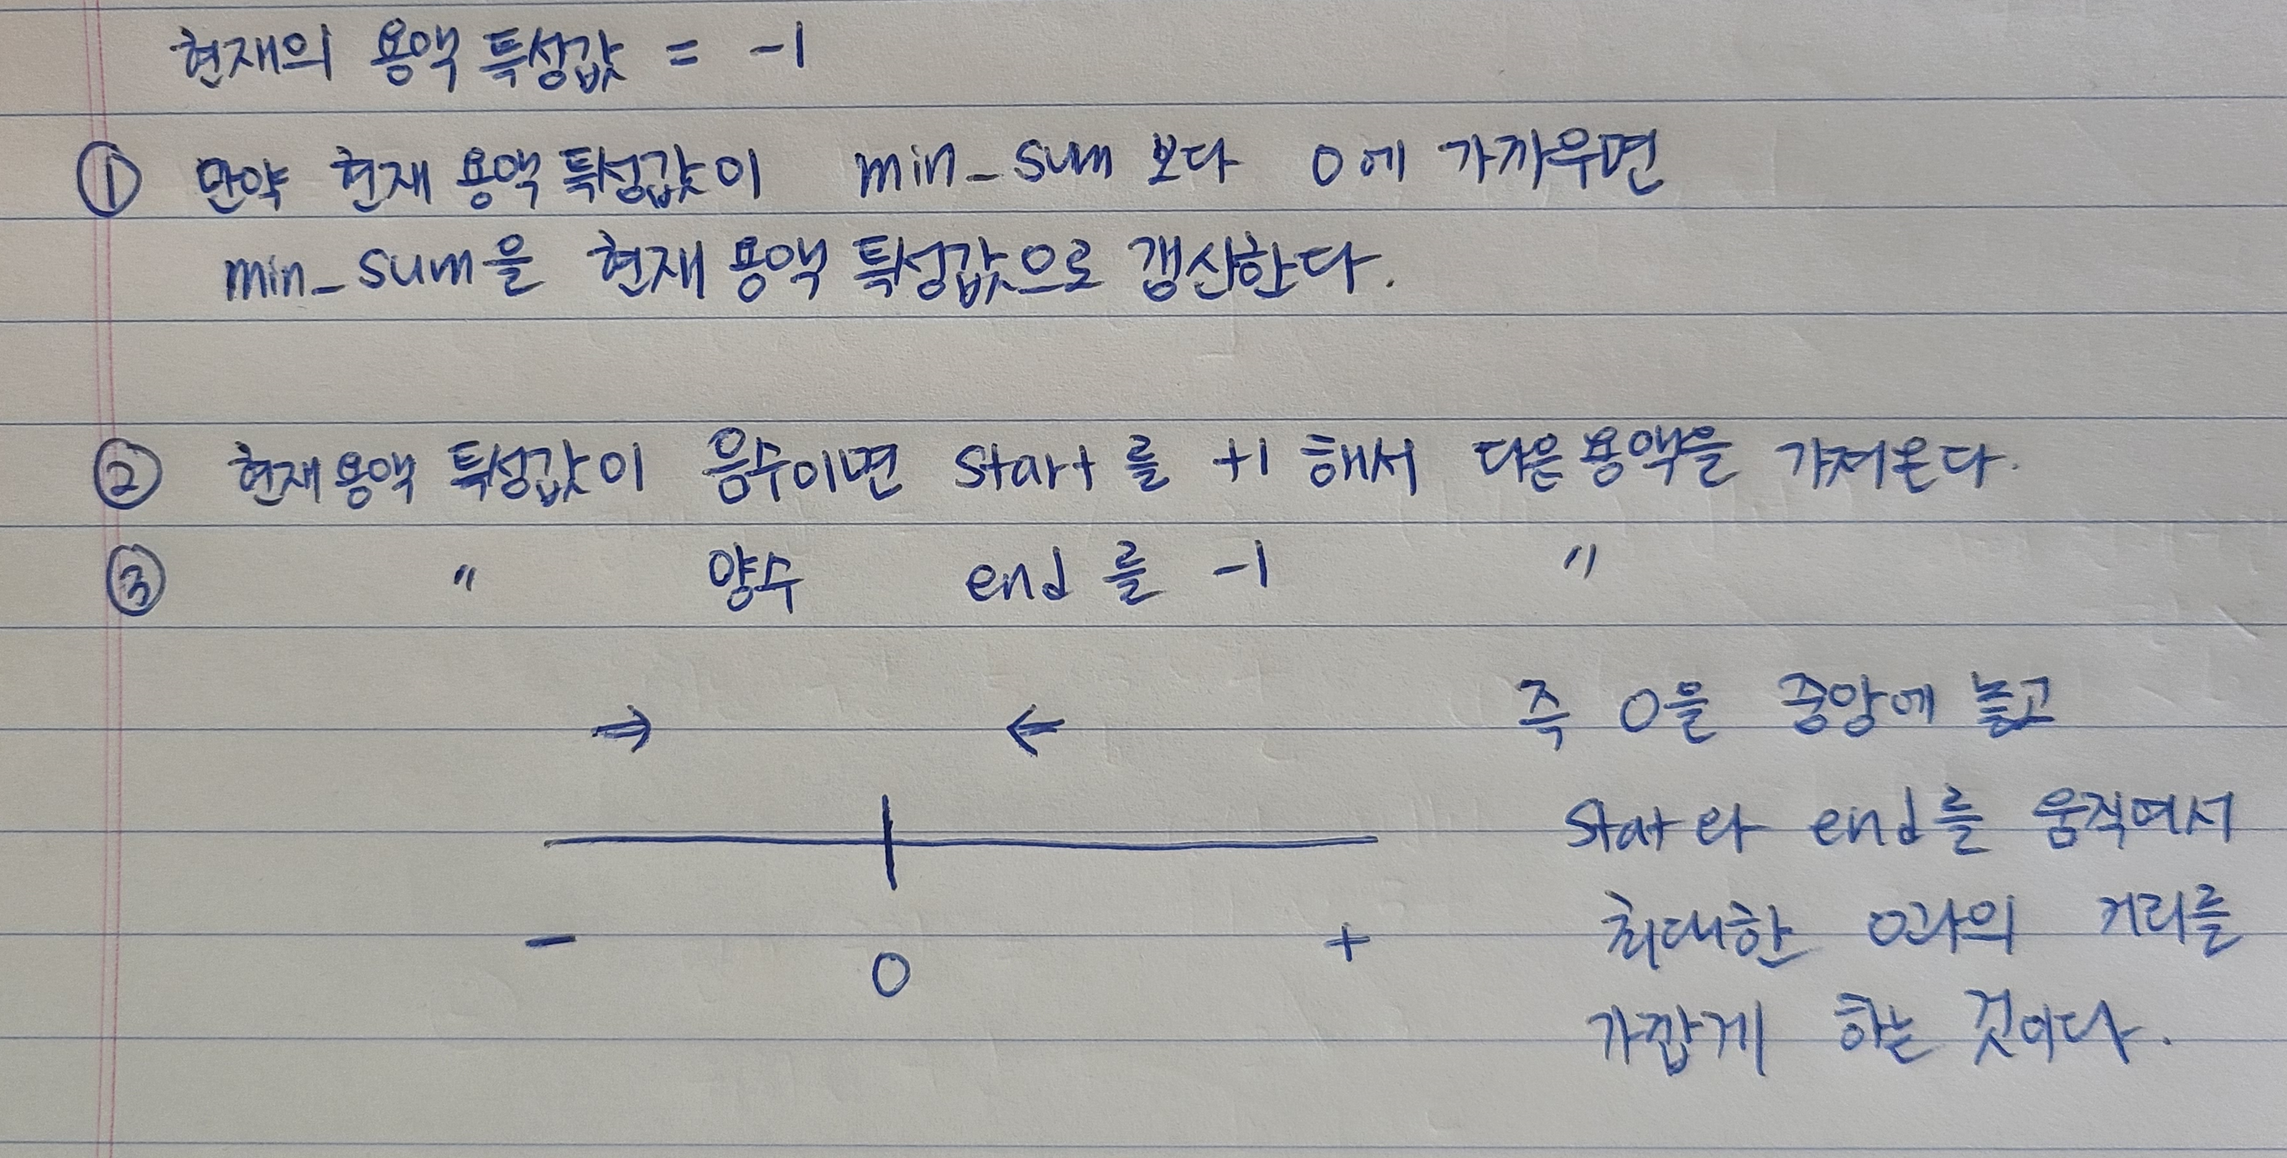 현재의 용액 특성값 = -1
① 만약 현재 용액 특성값이 min_sum 보다 0에 가까우면
min_sum을 현재 용액 특성값으로 갱신한다.
② 현재 용액 특성값이 음수이면 start 를 +1 해서 다음 용액을 가져온다.
③ 〃 양수 end 를 -1 〃
⇒ ⇐
- 0 +
즉 0을 중앙에 놓고
start와 end를 움직여서
최대한 0과의 거리를
가깝게 하는 것이다.